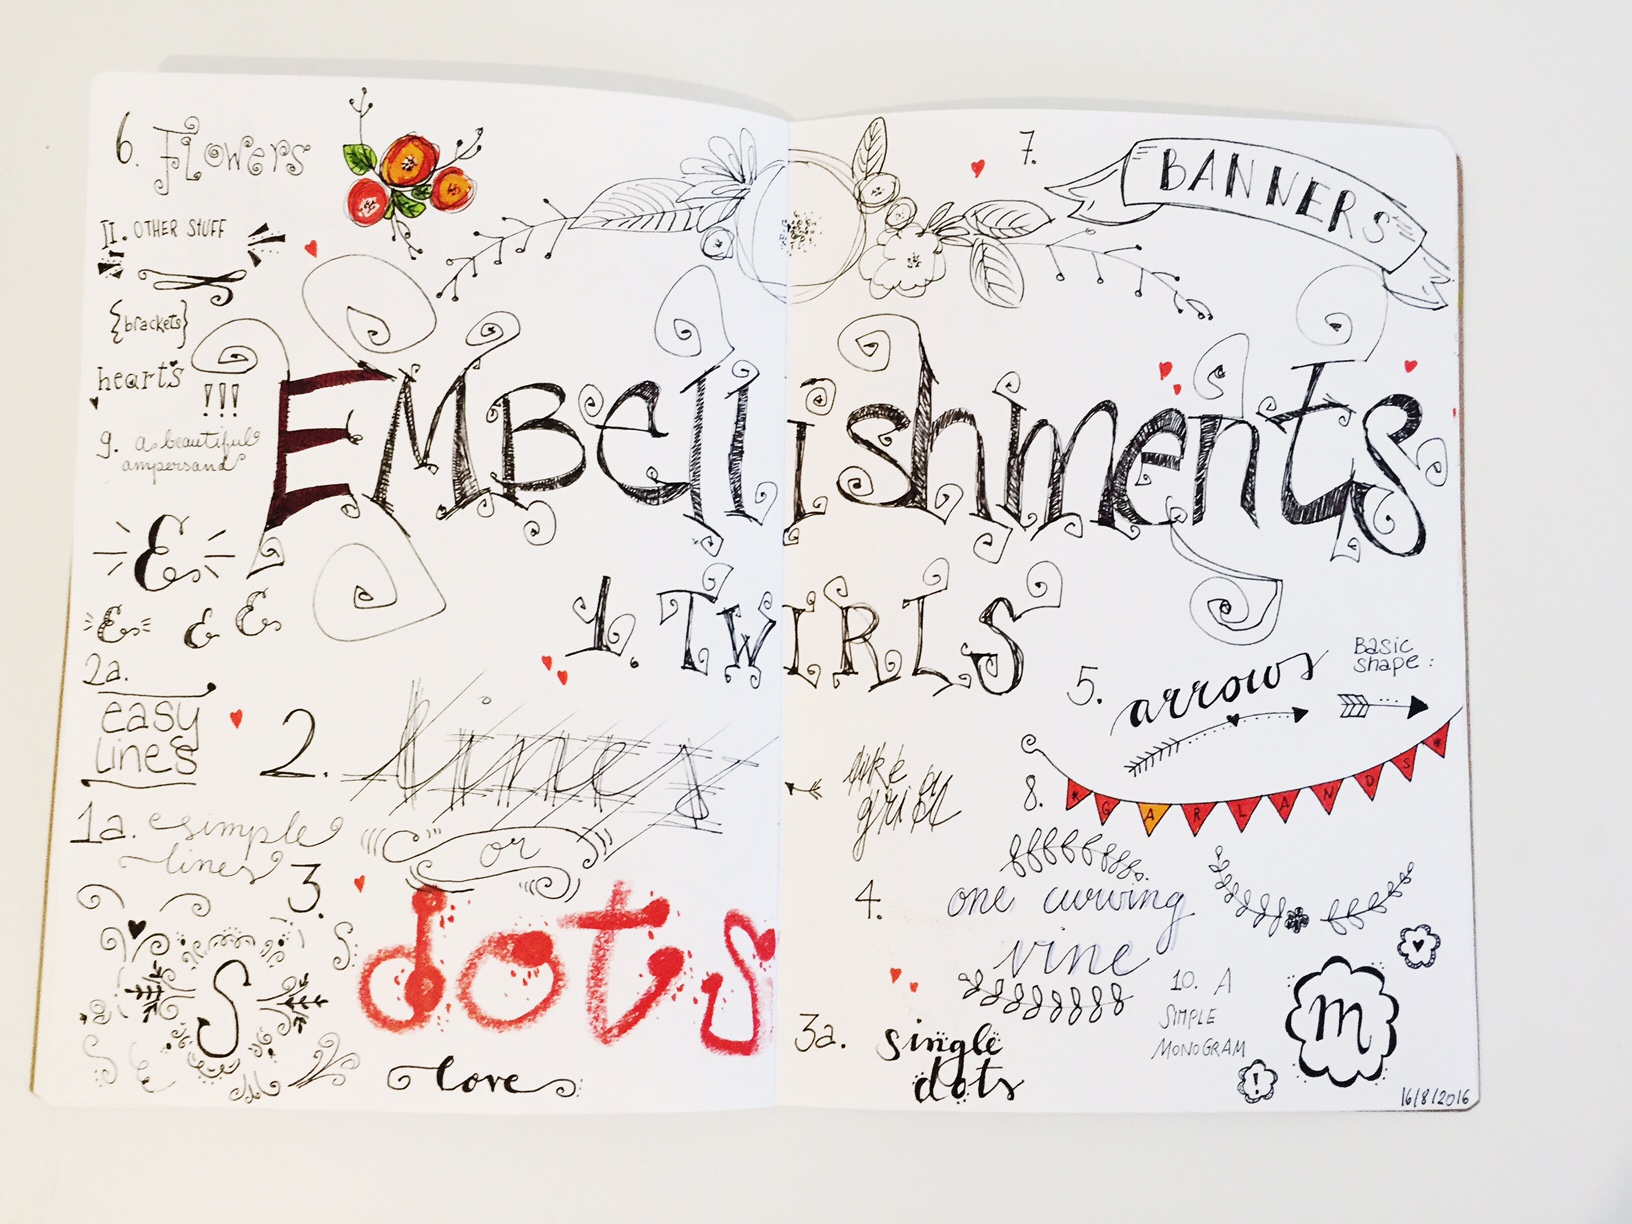 6. Flowers
II. OTHER STUFF
{brackets}
hearts
!!!
9. a beautiful
ampersand
&
& & &
7. BANNERS
EMBellishments
1. TWIRLS
2a.
easy
lines
2. lines
or
1a. simple
lines
3. dots
S
S
love
5. arrows
Basic
shape:
like a
grid
8. GARLANDS
4. one curving
vine
3a. single
dots
10. A
SIMPLE
MONOGRAM
m
!
16/8/2016